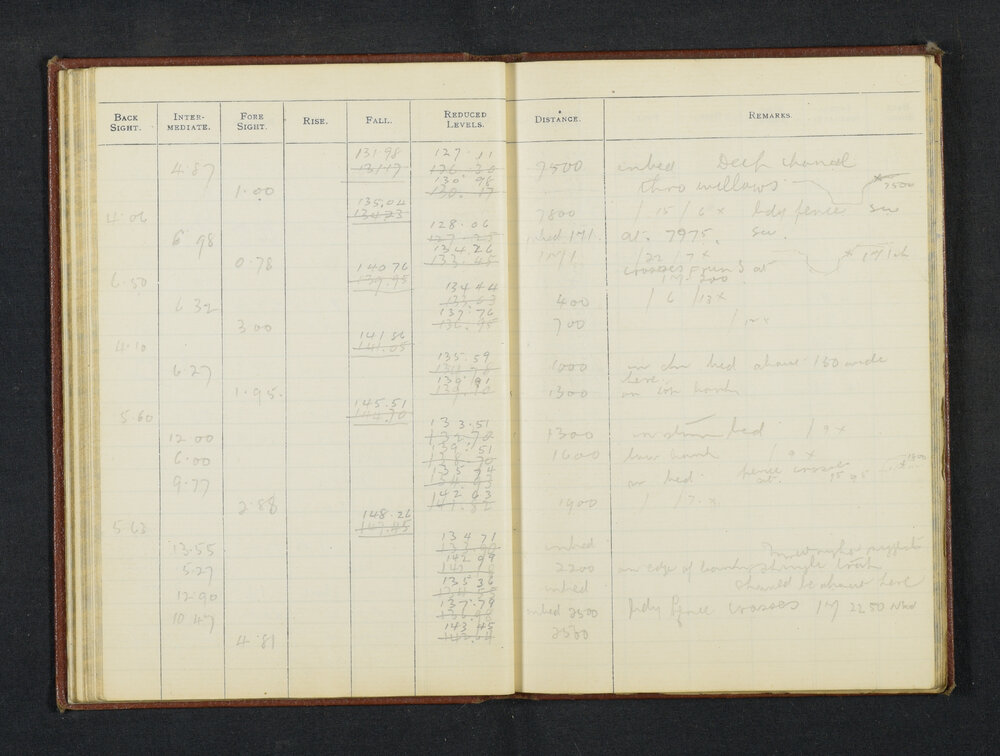 BACK SIGHT. INTER-MEDIATE. FORE SIGHT. RISE. FALL. REDUCED LEVELS. DISTANCE. REMARKS.
131.98 127.11
4.87 131.17 126.30 7500 inbed Deep channel
130.98
1.00 130.17 thro willows 7500
135.04
4.06 134.23 7800 / 15 / 6 x bdy fence
128.06
6.98 127.25 inbed 1M1 at 7975.
134.26
0.78 133.45 1M1 / 22 / 7 x
140.76
6.50 139.95 crosses at
134.44 1M. 200.
6.32 133.63 400 / 6 / 13 x
137.76
3.00 136.95 700
141.86
4.10 141.05
135.59
6.27 134.78 1000 bed about 150 wide here
139.91
1.95. 139.10 1300 on bank
145.51
5.60 144.70
133.51
12.00 132.70 1300 in stream bed / 9 x
139.51
6.00 138.70 1600 low bank / 9 x
135.74
9.77 134.93 in bed. fence crosses at
142.63
2.88 141.82 1900 / / 7. x
148.26
5.63 147.45
134.71
13.55 133.90 inbed
142.99
5.27 142.18 2200 on edge of shingle
135.36
12.90 134.55 inbed should be about here
137.79
10.47 136.98 inbed 2500 bdy fence crosses 1M 2250
143.45
4.81 142.64 2500